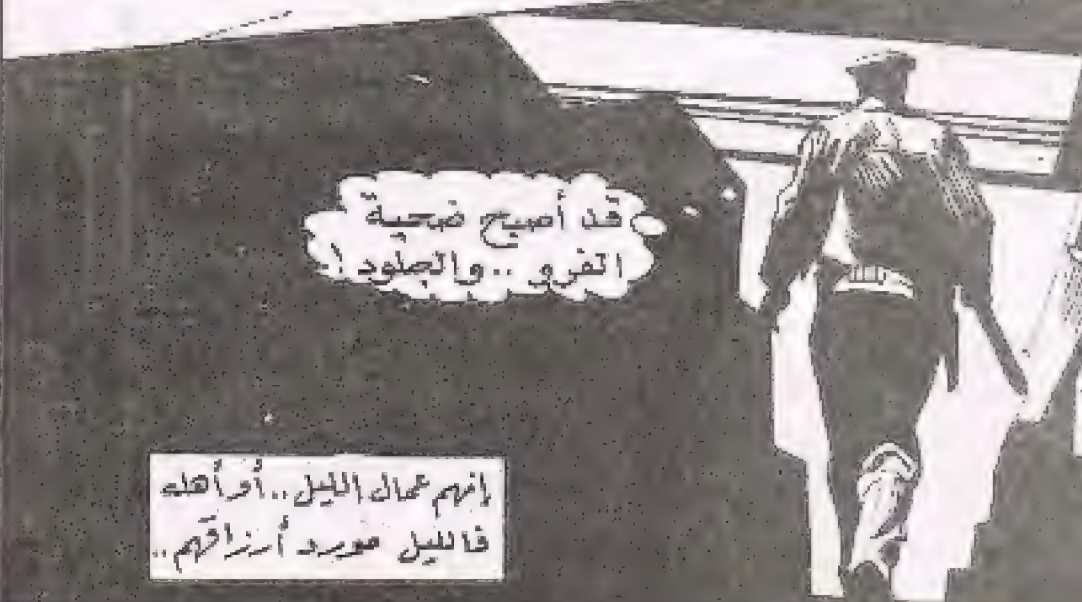 قد أصبح ضحية
الفرو .. والجلود !
إنهم عمال الليل .. أو أهله
فالليل مورد أرزاقهم ..